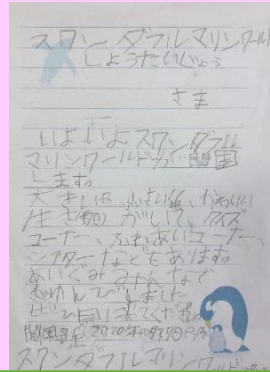 スワンダフルマリンワールド
しょうたいじょう
さま
いよいよスワンダフル
マリンワールドが開国
します。
大きい魚、小さい魚、かわいい
生き物がいて、クイズ
コーナー、ふれあいコーナー、
シアターなどもあります。
みんなで
じゅんびしました
ぜひ見に来てください。
スワンダフルマリンワールド